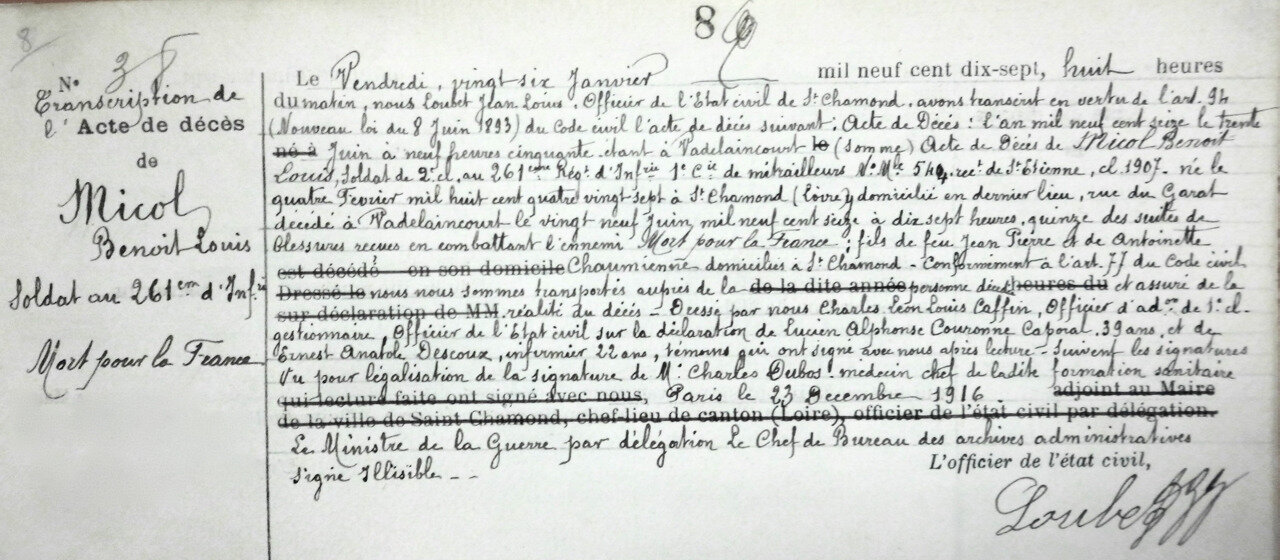 8
8
N° 38
Transcription de
l'Acte de décès
de
Micol
Benoit Louis
Soldat au 261em d'Infrie
Mort pour la France
Le Vendredi, vingt six Janvier mil neuf cent dix-sept, huit heures
du matin, nous Loubet Jean Louis. Officier de l'Etat civil de St Chamond. avons transcrit en vertu de l'art. 94
(Nouveau loi du 8 Juin 1893) du Code civil l'acte de décès suivant. Acte de Décès : l'an mil neuf cent seize le trente
né à Juin à neuf heures cinquante étant à Vadelaincourt le (Somme) Acte de Décès de Micol Benoit
Louis, Soldat de 2e cl. au 261eme Régt d'Infrie 1e Cie de mitrailleurs N° Mle 549, rect de St Etienne, cl 1907. né le
quatre Fevrier mil huit cent quatre vingt sept à St Chamond (Loire) domicilié en dernier lieu, rue du Garat
décédé à Vadelaincourt le vingt neuf Juin mil neuf cent seize à dix sept heures, quinze des suites de
blessures recues en combattant l'ennemi Mort pour la France ; fils de feu Jean Pierre et de Antoinette
est décédé en son domicile Chaumienne domiciliés à St Chamond - Conformément à l'art. 77 du Code civil
Dressé le nous nous sommes transportés auprès de la de la dite année personne décédée heures du et assuré de la
sur déclaration de MM. réalité du décès - Dressé par nous Charles Léon Louis Caffin, Officier d'adon de 1e cl.
gestionnaire, Officier de l'Etat civil sur la déclaration de Lucien Alphonse Couronne Caporal. 39 ans, et de
Ernest Anatole Descoux, infirmier 22 ans, témoins qui ont signé avec nous après lecture - Suivent les signatures
Vu pour légalisation de la signature de Mr Charles Dubos. medecin chef de ladite formation sanitaire
qui lecture faite ont signé avec nous, Paris le 23 Decembre 1916. adjoint au Maire
de la ville de Saint Chamond, chef-lieu de canton (Loire), officier de l'état civil par délégation.
Le Ministre de la Guerre par délégation Le Chef de Bureau des archives administratives
Signé Illisible - -
L'officier de l'état civil,
Loubet